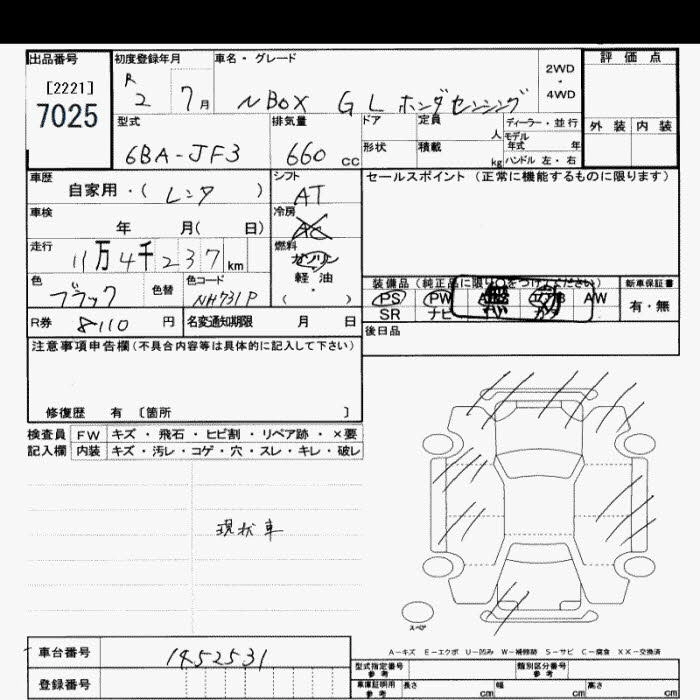 出品番号
[2221]
7025
初度登録年月
R 2 7月
車名・グレード
N BOX G L ホンダセンシング
2WD
・
4WD
評価点
外装 内装
型式
6BA-JF3
排気量
660 cc
ドア
形状
定員 人
積載 kg
ディーラー・並行
モデル
年式 年
ハンドル 左・右
車歴
自家用・( レンタ )
シフト
AT
セールスポイント (正常に機能するものに限ります)
車検
年 月( 日)
冷房
AC
走行
11万4千237km
燃料
ガソリン
軽・油
( )
色
ブラック
色替
色コード
NH731P
装備品(純正品に限り○をつけてください)
PS PW AW
SR ナビ
新車保証書
有・無
R券 8110 円
名変通知期限 月 日
後日品
注意事項申告欄(不具合内容等は具体的に記入して下さい)
修復歴 有 〔箇所 〕
検査員
記入欄
FW キズ・飛石・ヒビ割・リペア跡・×要
内装 キズ・汚レ・コゲ・穴・スレ・キレ・破レ
現状車
スペア
A-キズ E-エクボ U-凹み W-補修跡 S-サビ C-腐食 XX-交換済
車台番号
1452531
登録番号
型式指定番号
参考
類別区分番号
参考
車庫証明用
参考
長さ cm 幅 cm 高さ cm